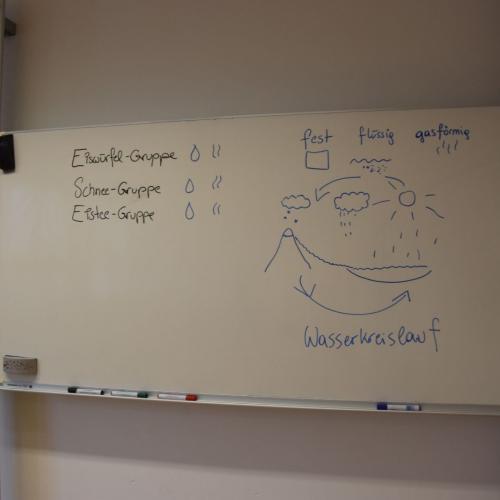 Eiswürfel-Gruppe
Schnee-Gruppe
Eistee-Gruppe
fest flüssig gasförmig
Wasserkreislauf